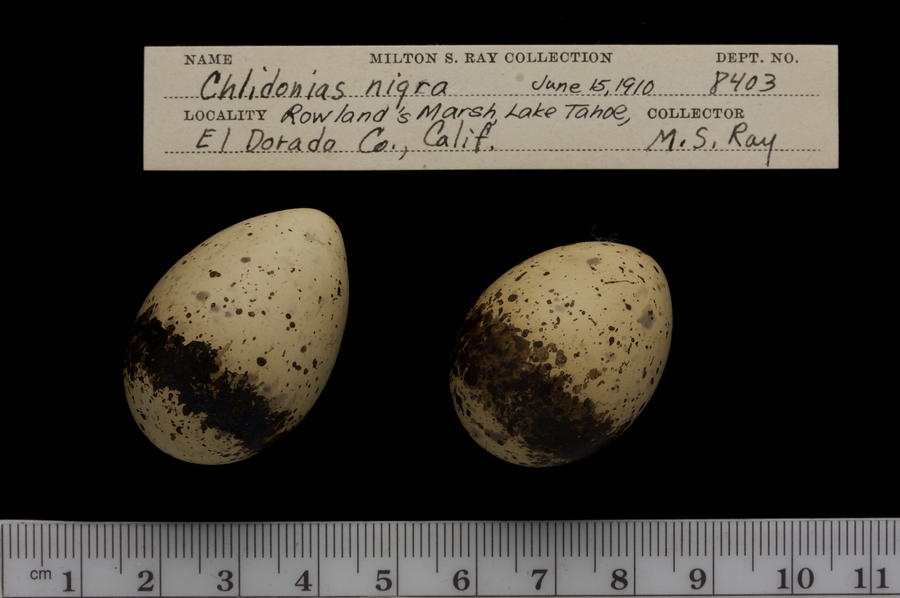 NAME MILTON S. RAY COLLECTION DEPT. NO.
Chlidonias nigra June 15, 1910 8403
LOCALITY Rowland's Marsh, Lake Tahoe, COLLECTOR
El Dorado Co., Calif. M.S. Ray
cm 1 2 3 4 5 6 7 8 9 10 11